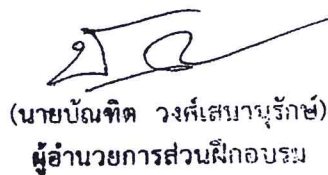 (นายบัณฑิต วงศ์เสนานุรักษ์)
ผู้อำนวยการส่วนฝึกอบรม